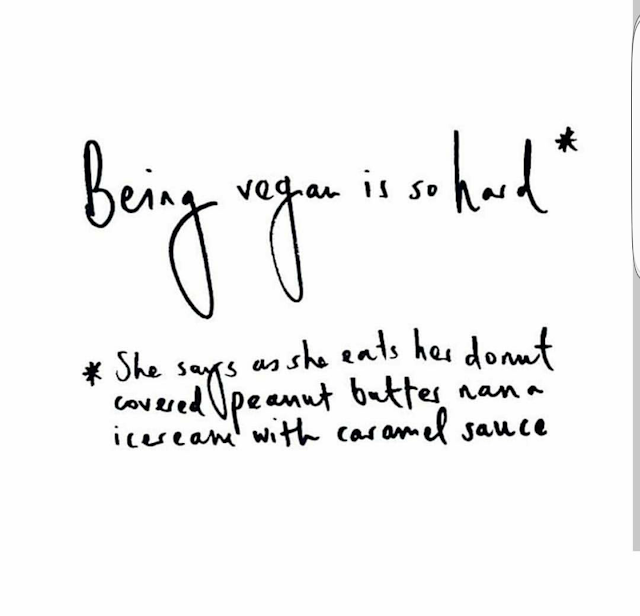 Being vegan is so hard *
* She says as she eats her donut
covered peanut butter nana
icecream with caramel sauce